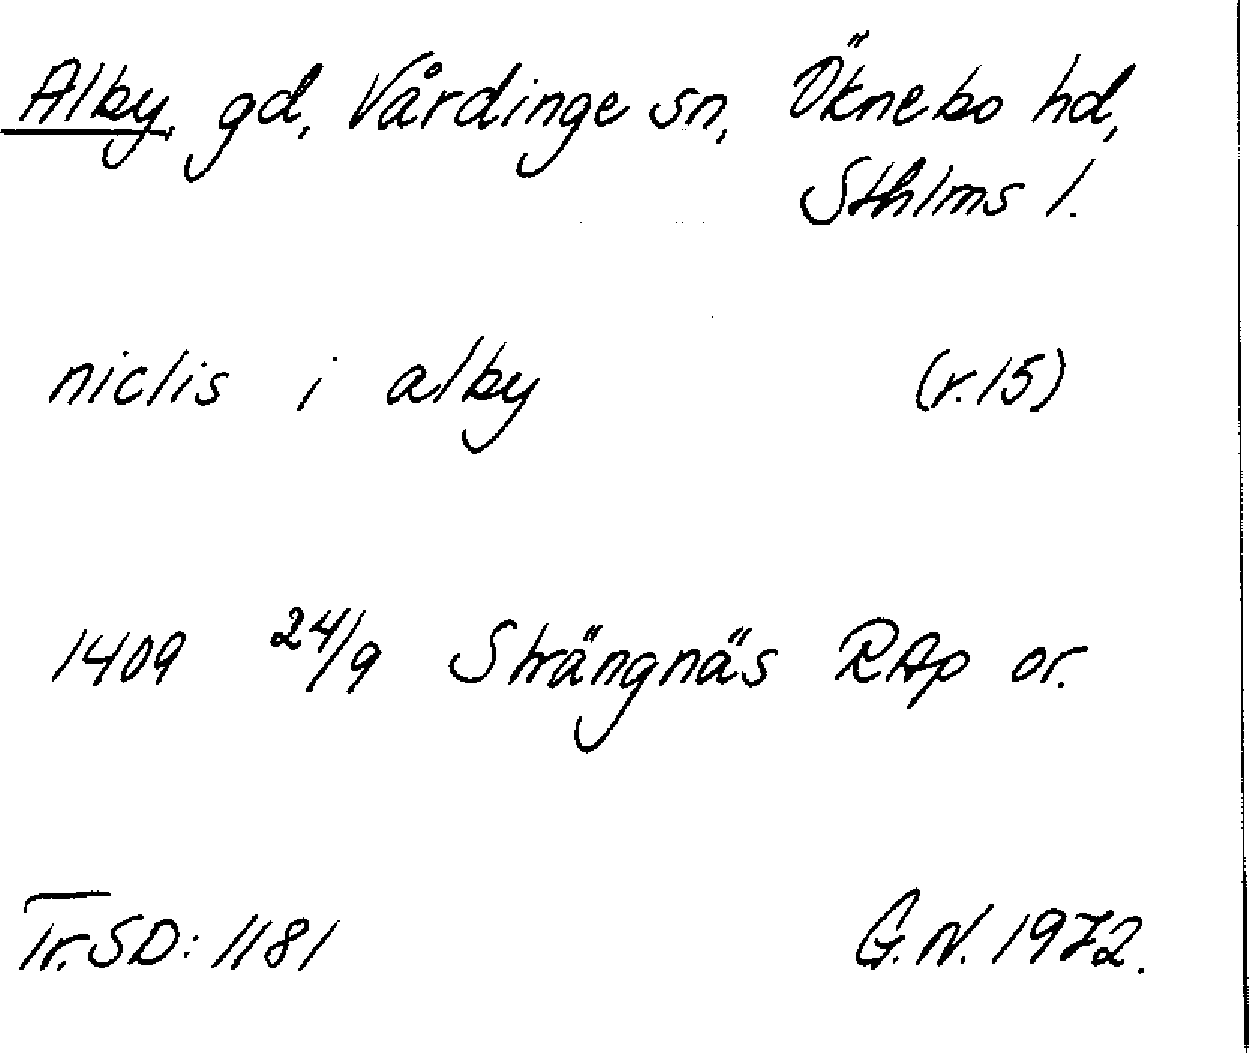 Alby, gd, Vårdinge sn, Öknebo hd,
Sthlms l.
niclis i alby (r.15)
1409 24/9 Strängnäs RAp or.
Tr. SD: 1181 G.N. 1972.